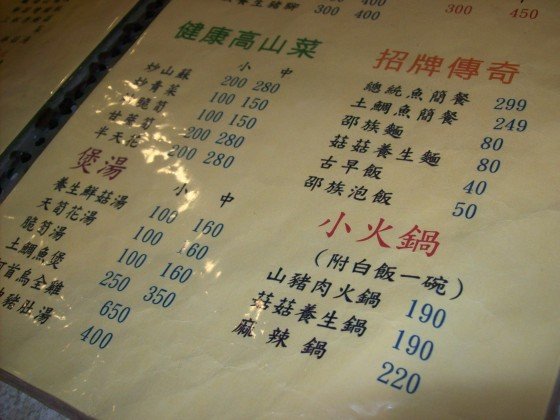 養生豬腳 300 400
400
300 450
健康高山菜
小 中
炒山蘇 200 280
炒青菜 100 150
脆筍 100 150
甘蔗筍 200 280
半天花 200 280
煲湯
小 中
養生鮮菇湯 100 160
天筍花湯 100 160
脆筍湯 100 160
土鯛魚煲 250 350
首烏全雞 650
豬肚湯 400
招牌傳奇
總統魚簡餐 299
土鯛魚簡餐 249
邵族麵 80
菇菇養生麵 80
古早飯 40
邵族泡飯 50
小火鍋
(附白飯一碗)
山豬肉火鍋 190
菇菇養生鍋 190
麻辣鍋 220